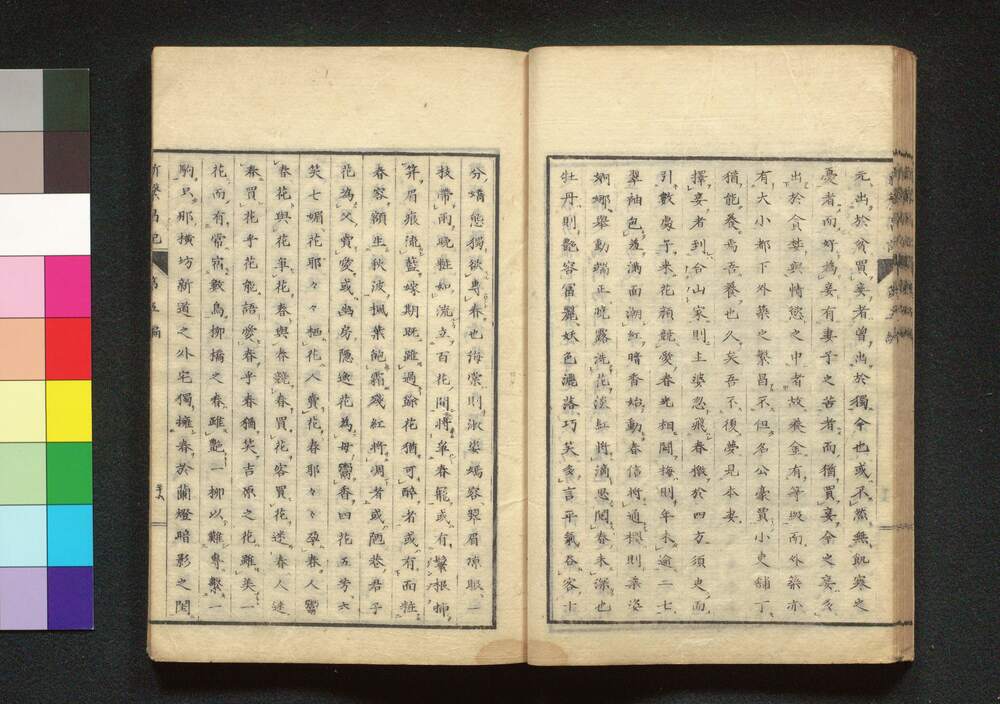 元出於貧買妾者曾出於獨今也或不然無飢寒之
憂者而好為妾有妻子之苦者而猶買妾今之妾多
出於貪婪與情慾之中者故養金有等級而外妾亦
有大小都下外妾之繁昌不但名公豪買小吏舖丁
猶能養焉吾養也久矣吾不復夢見本妻
擇妾者到台山家則主婆忽飛春檄於四方須臾而
引數處子来花顔競愛春光相鬪梅則年未逾二七
翠袖色羞滿面潮紅暗香始動春信將通櫻則柔姿
婀娜舉動端正曉露洗花淡紅將滴思閨春未深也
牡丹則艶容富麗妖色灑落巧笑美言平氣呑客十
分嬌態獨欲專春也海棠則淑姿嫣容翠眉凉眼一
枝帶雨晚粧如流立百花間將爭春寵或有鬢根掃
笄眉痕流藍嫁期既雖過餘花猶可醉者或有面粧
春容額生秋波楓葉飽霜殘紅將凋者或陋巷君子
花為父賣愛或幽房隱逸花為母鬻香四花五芳六
笑七媚花耶々々栖花人賣花春耶々々孕春人鬻
春花與花爭花春與春競春買花客買花迷春人迷
春買花乎花能語愛春乎春猶笑吉原之花雖美一
花而有常宿數鳥柳橋之春雖艶一柳以難專繫一
駒只那横坊新道之外宅獨擁春於蘭燈暗影之閨